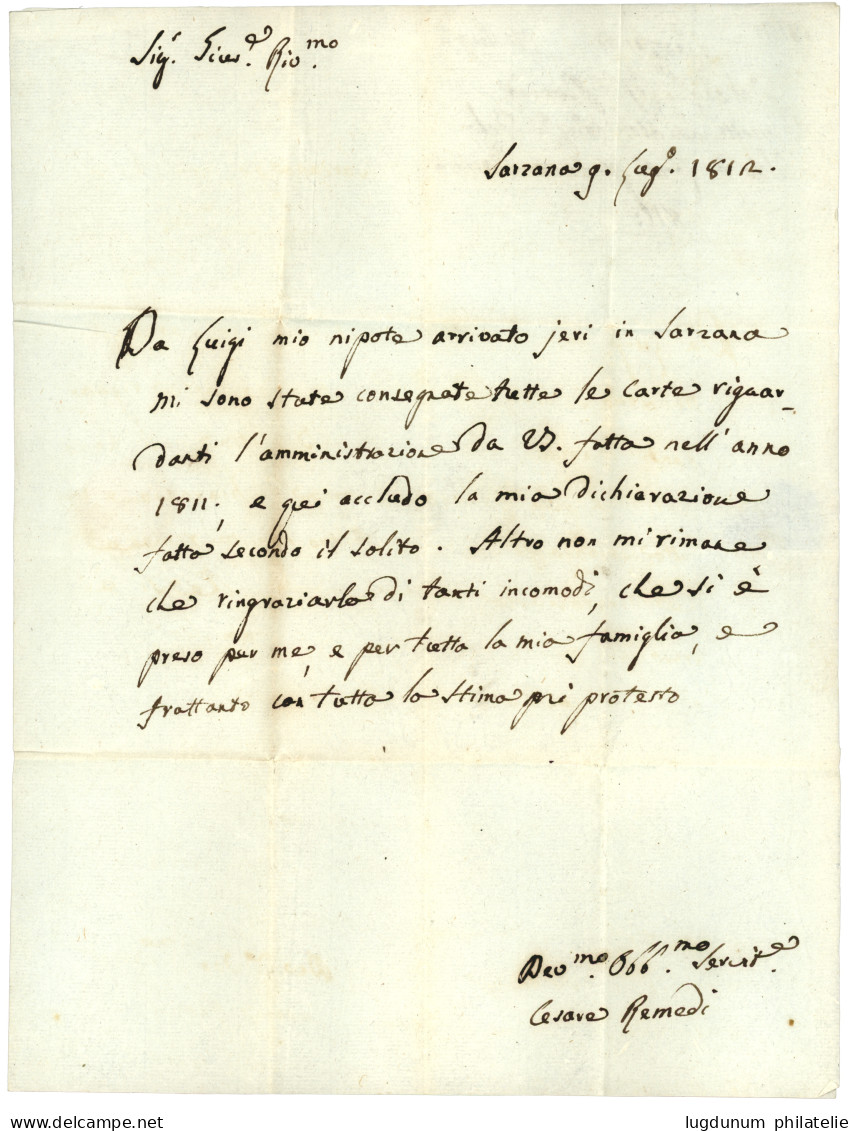 Sig.r Rio.mo
Sarzana 9. Lug.o 1812.
Da Luigi mio nipote arrivato jeri in Sarzana
mi sono state consegnate tutte le Carte riguar-
danti l'amministrazione da fatta nell'anno
1811., e qui accludo la mia dichiarazione
fatta secondo il solito. Altro non mi rimane
che ringraziarla di tanti incomodi, che si è
preso per me, e per tutta la mia famiglia, e
frattanto con tutta la stima mi protesto
Dev.mo Obb.mo Servit.e
Cesare Remedi
lugdunum philatelie